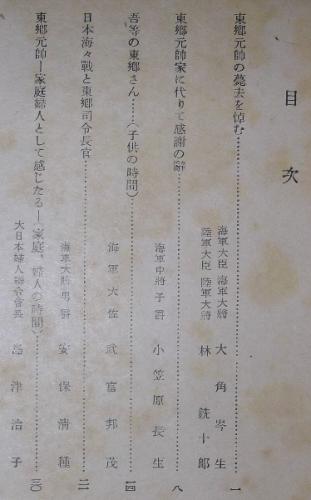 目次
東郷元帥の薨去を悼む
海軍大臣 海軍大將 大角岑生
陸軍大臣 陸軍大將 林銑十郎
一
東郷元帥家に代りて感謝の辭
海軍中將 子爵 小笠原長生
八
吾等の東郷さん……(子供の時間)
海軍大佐 武富邦茂
一四
日本海々戰と東郷司令長官
海軍大將 男爵 安保清種
二一
東郷元帥―家庭婦人として感じたる―(家庭、婦人の時間)
大日本婦人聯合會長 島津治子
三〇